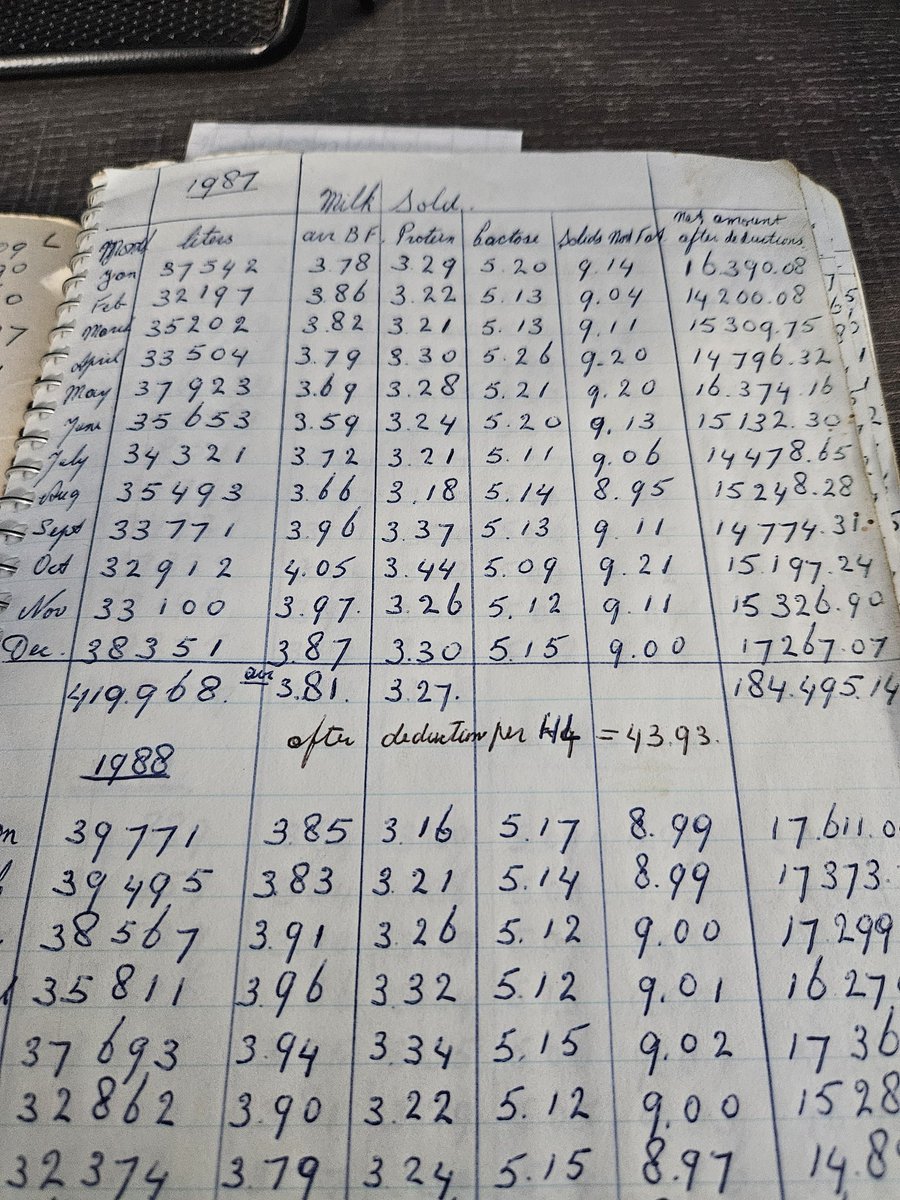 1987 Milk Sold.
Month liters av BF. Protein Lactose Solids Not Fat Net amount after deductions
Jan 37542 3.78 3.29 5.20 9.14 16.390.08
Feb 32197 3.86 3.22 5.13 9.04 14200.08
March 35202 3.82 3.21 5.13 9.11 15309.75
April 33504 3.79 3.30 5.26 9.20 14796.32
May 37923 3.69 3.28 5.21 9.20 16.374.16
June 35653 3.59 3.24 5.20 9.13 15132.30
July 34321 3.72 3.21 5.11 9.06 14478.65
Aug 35493 3.66 3.18 5.14 8.95 15248.28
Sept 33771 3.96 3.37 5.13 9.11 14774.31
Oct 32912 4.05 3.44 5.09 9.21 15.197.24
Nov 33100 3.97. 3.26 5.12 9.11 15326.90
Dec. 38351 3.87 3.30 5.15 9.00 17267.07
419.968. av 3.81. 3.27. 184.495.14
after deduction per = 43.93.
1988
39771 3.85 3.16 5.17 8.99 17.611.0
39495 3.83 3.21 5.14 8.99 17373.
38567 3.91 3.26 5.12 9.00 17.299
35811 3.96 3.32 5.12 9.01 16.27
37693 3.94 3.34 5.15 9.02 1736
32862 3.90 3.22 5.12 9.00 1528
32374 3.79 3.24 5.15 8.97 14.8